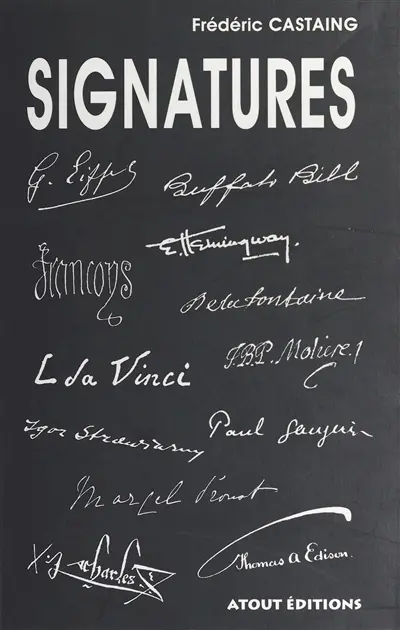 Frédéric CASTAING
SIGNATURES
G. Eiffel
Buffalo Bill
E. Hemingway.
Francoys
De la fontaine
J.B.P. Moliere.
L da Vinci
Igor Strawinsky
Paul Gauguin
Marcel Proust
Charles
Thomas A Edison.
ATOUT ÉDITIONS